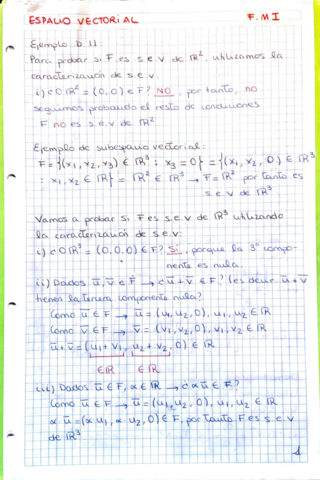 ESPACIO VECTORIAL F.M I
Ejemplo D.11:
Para probar si F es s.e.v de ℝ², utilizamos la
caracterización de s.e.v.
i) ¿0ℝ² = (0,0) ∈ F? NO, por tanto, no
seguimos probando el resto de condiciones
F no es s.e.v de ℝ²
Ejemplo de subespacio vectorial:
F = {(x₁, x₂, x₃) ∈ ℝ³ : x₃ = 0} = {(x₁, x₂, 0) ∈ ℝ³
: x₁, x₂ ∈ ℝ} = ℝ² ∈ ℝ³ → F = ℝ² por tanto es
s.e.v de ℝ³
Vamos a probar si F es s.e.v de ℝ³ utilizando
la caracterización de s.e.v:
i) ¿0ℝ³ = (0,0,0) ∈ F? Sí, porque la 3ª compo-
nente es nula.
ii) Dados u̅, v̅ ∈ F → ¿u̅ + v̅ ∈ F? (es decir u̅ + v̅
tienen la tercera componente nula?
Como u̅ ∈ F → u̅ = (u₁, u₂, 0), u₁, u₂ ∈ ℝ
Como v̅ ∈ F → v̅ = (v₁, v₂, 0), v₁, v₂ ∈ ℝ
u̅ + v̅ = (u₁ + v₁, u₂ + v₂, 0) ∈ ℝ
∈ℝ ∈ℝ
iii) Dados u̅ ∈ F, α ∈ ℝ → ¿αu̅ ∈ F?
Como u̅ ∈ F → u̅ = (u₁, u₂, 0), u₁, u₂ ∈ ℝ
α u̅ = (α u₁, α u₂, 0) ∈ F, por tanto F es s.e.v
de ℝ³.
1